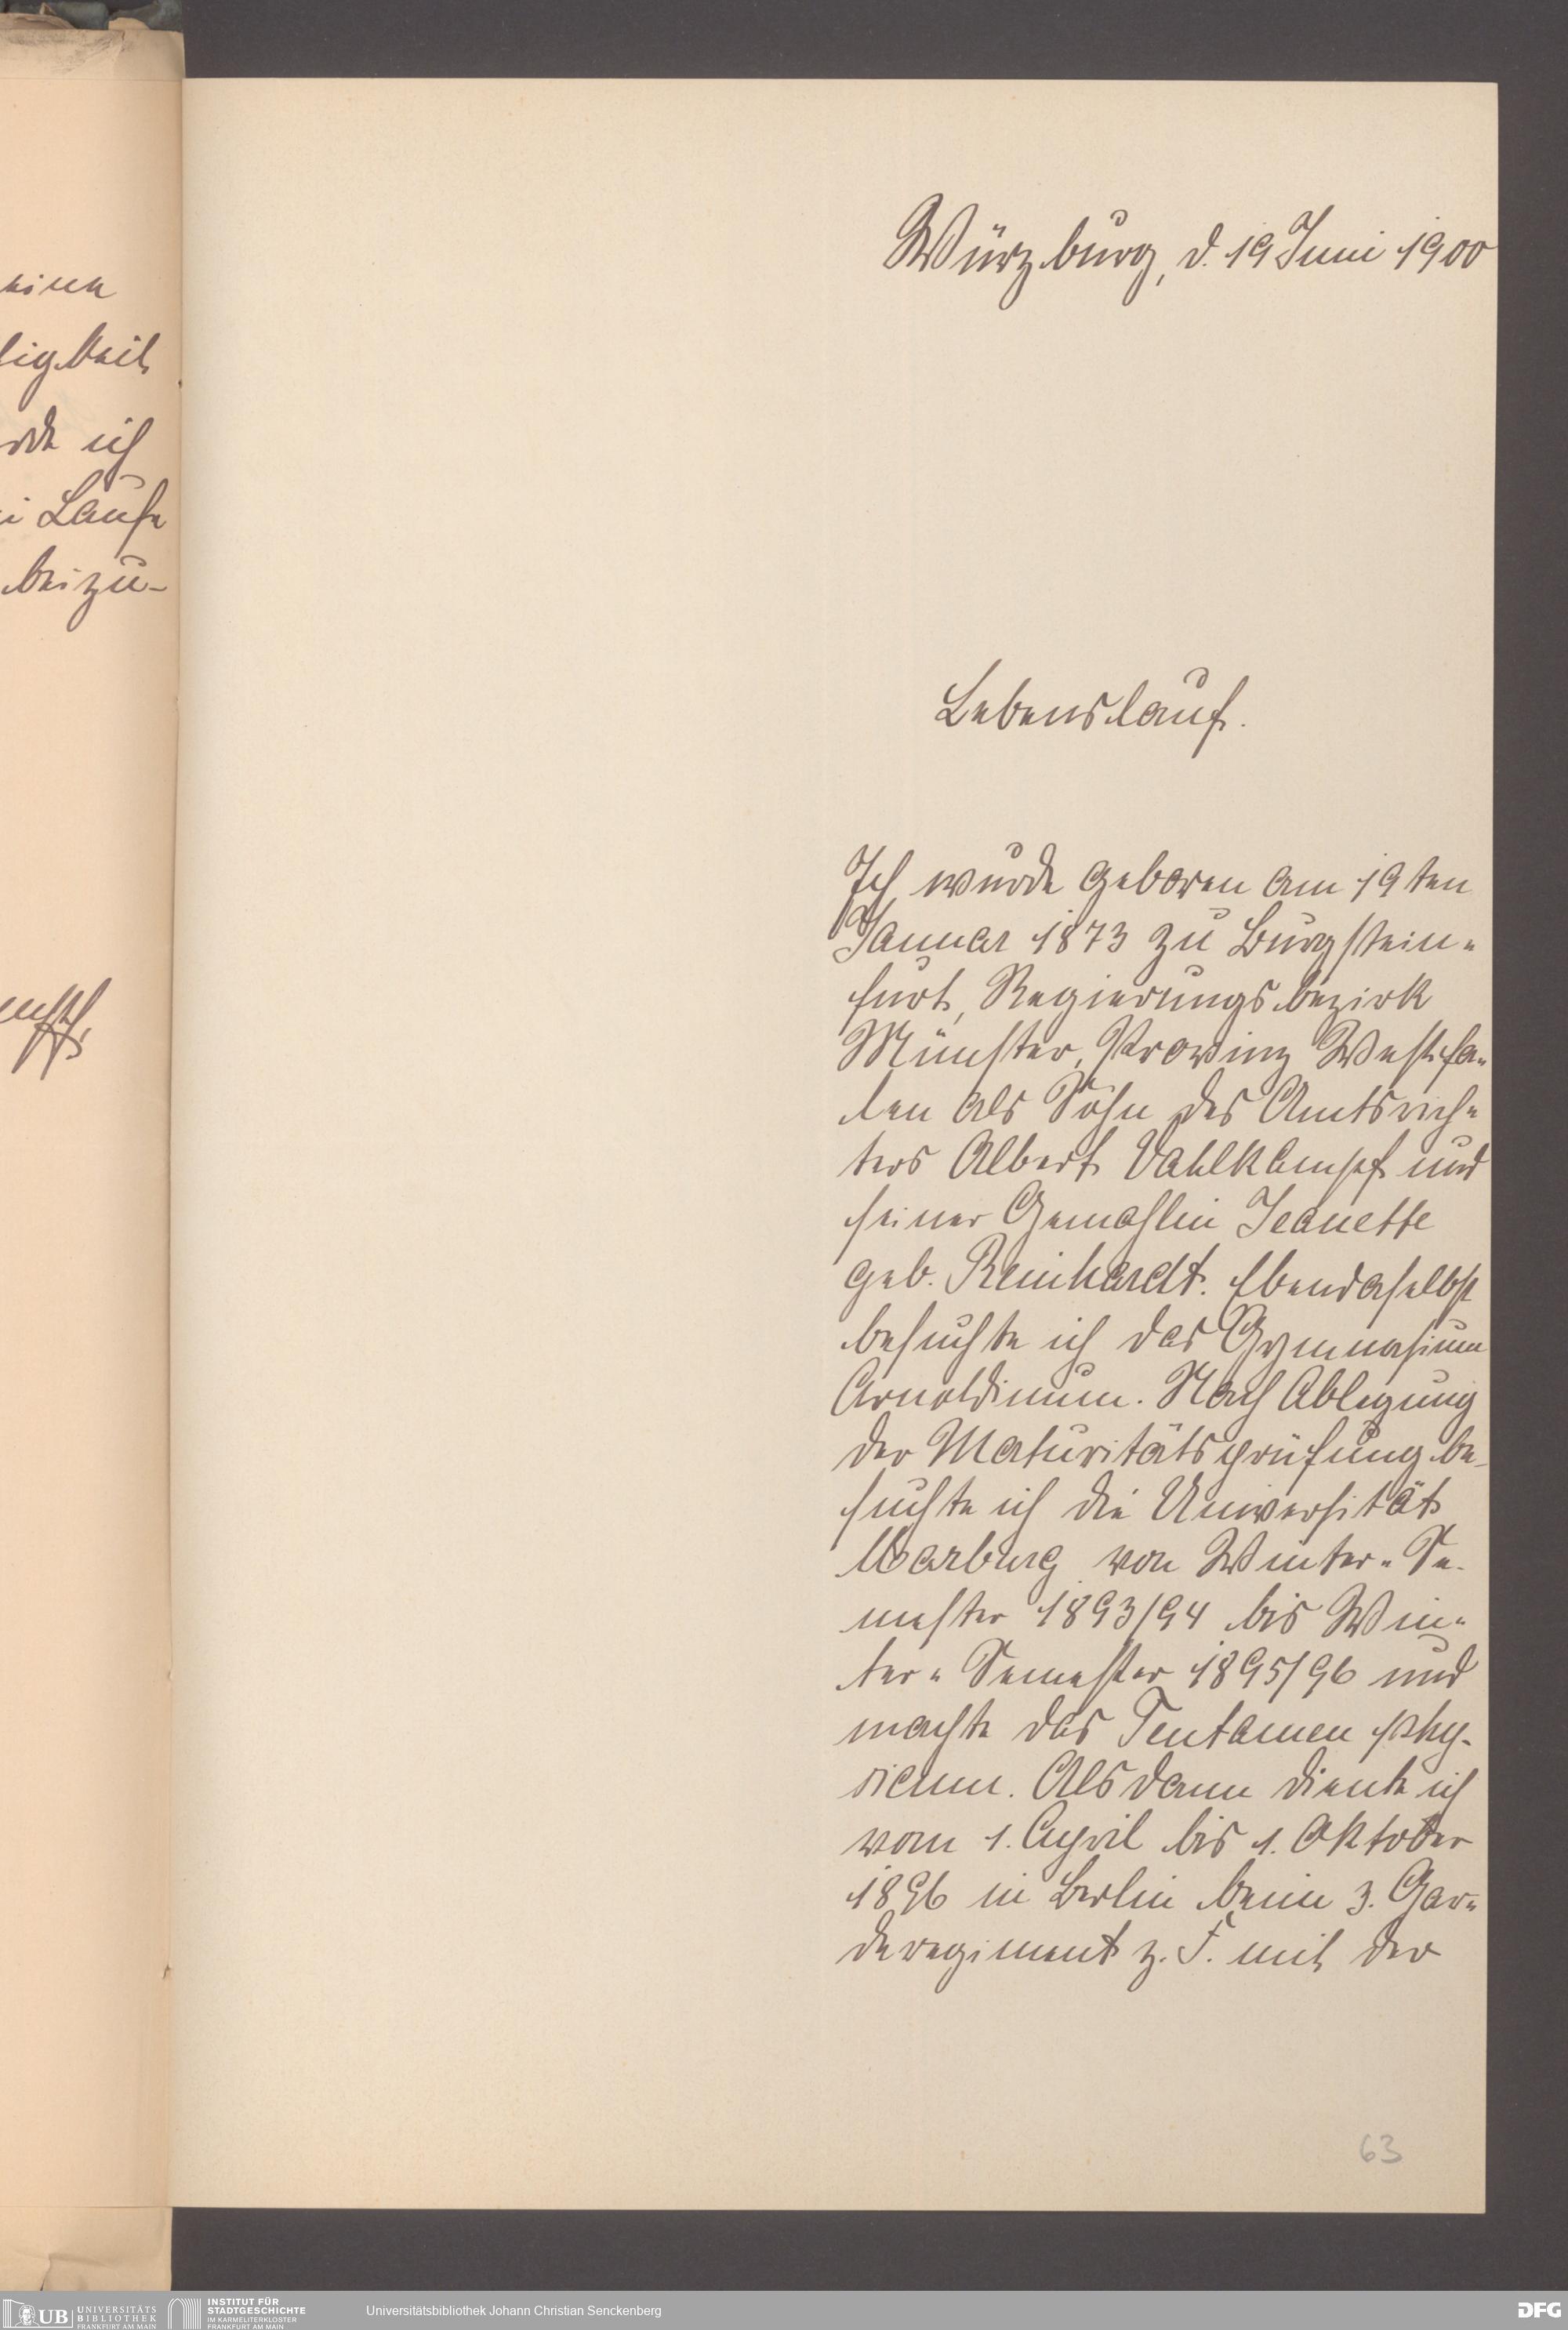 eine
ligkeit
rde ich
i Laufe
beizu-
Würzburg, d. 19 Juni 1900
Lebenslauf.
Ich wurde geboren am 19ten
Januar 1873 zu Burgstein-
furt, Regierungsbezirk
Münster, Provinz Westfa-
len als Sohn des Amtsrich-
ters Albert Vahlkampf und
seiner Gemahlin Jeanette
geb. Reinhardt. Ebendaselbst
besuchte ich das Gymnasium
Arnoldinum. Nach Ablegung
der Maturitätsprüfung be-
suchte ich die Universität
Marburg von Winter-Se-
mester 1893/94 bis Win-
ter-Semester 1895/96 und
machte das Tentamen phy-
sicum. Alsdann diente ich
vom 1. April bis 1. Oktober
1896 in Berlin beim 3. Gar-
deregiment z. F. mit der
63
UB UNIVERSITÄTS
BIBLIOTHEK
FRANKFURT AM MAIN
INSTITUT FÜR
STADTGESCHICHTE
IM KARMELITERKLOSTER
FRANKFURT AM MAIN
Universitätsbibliothek Johann Christian Senckenberg
DFG